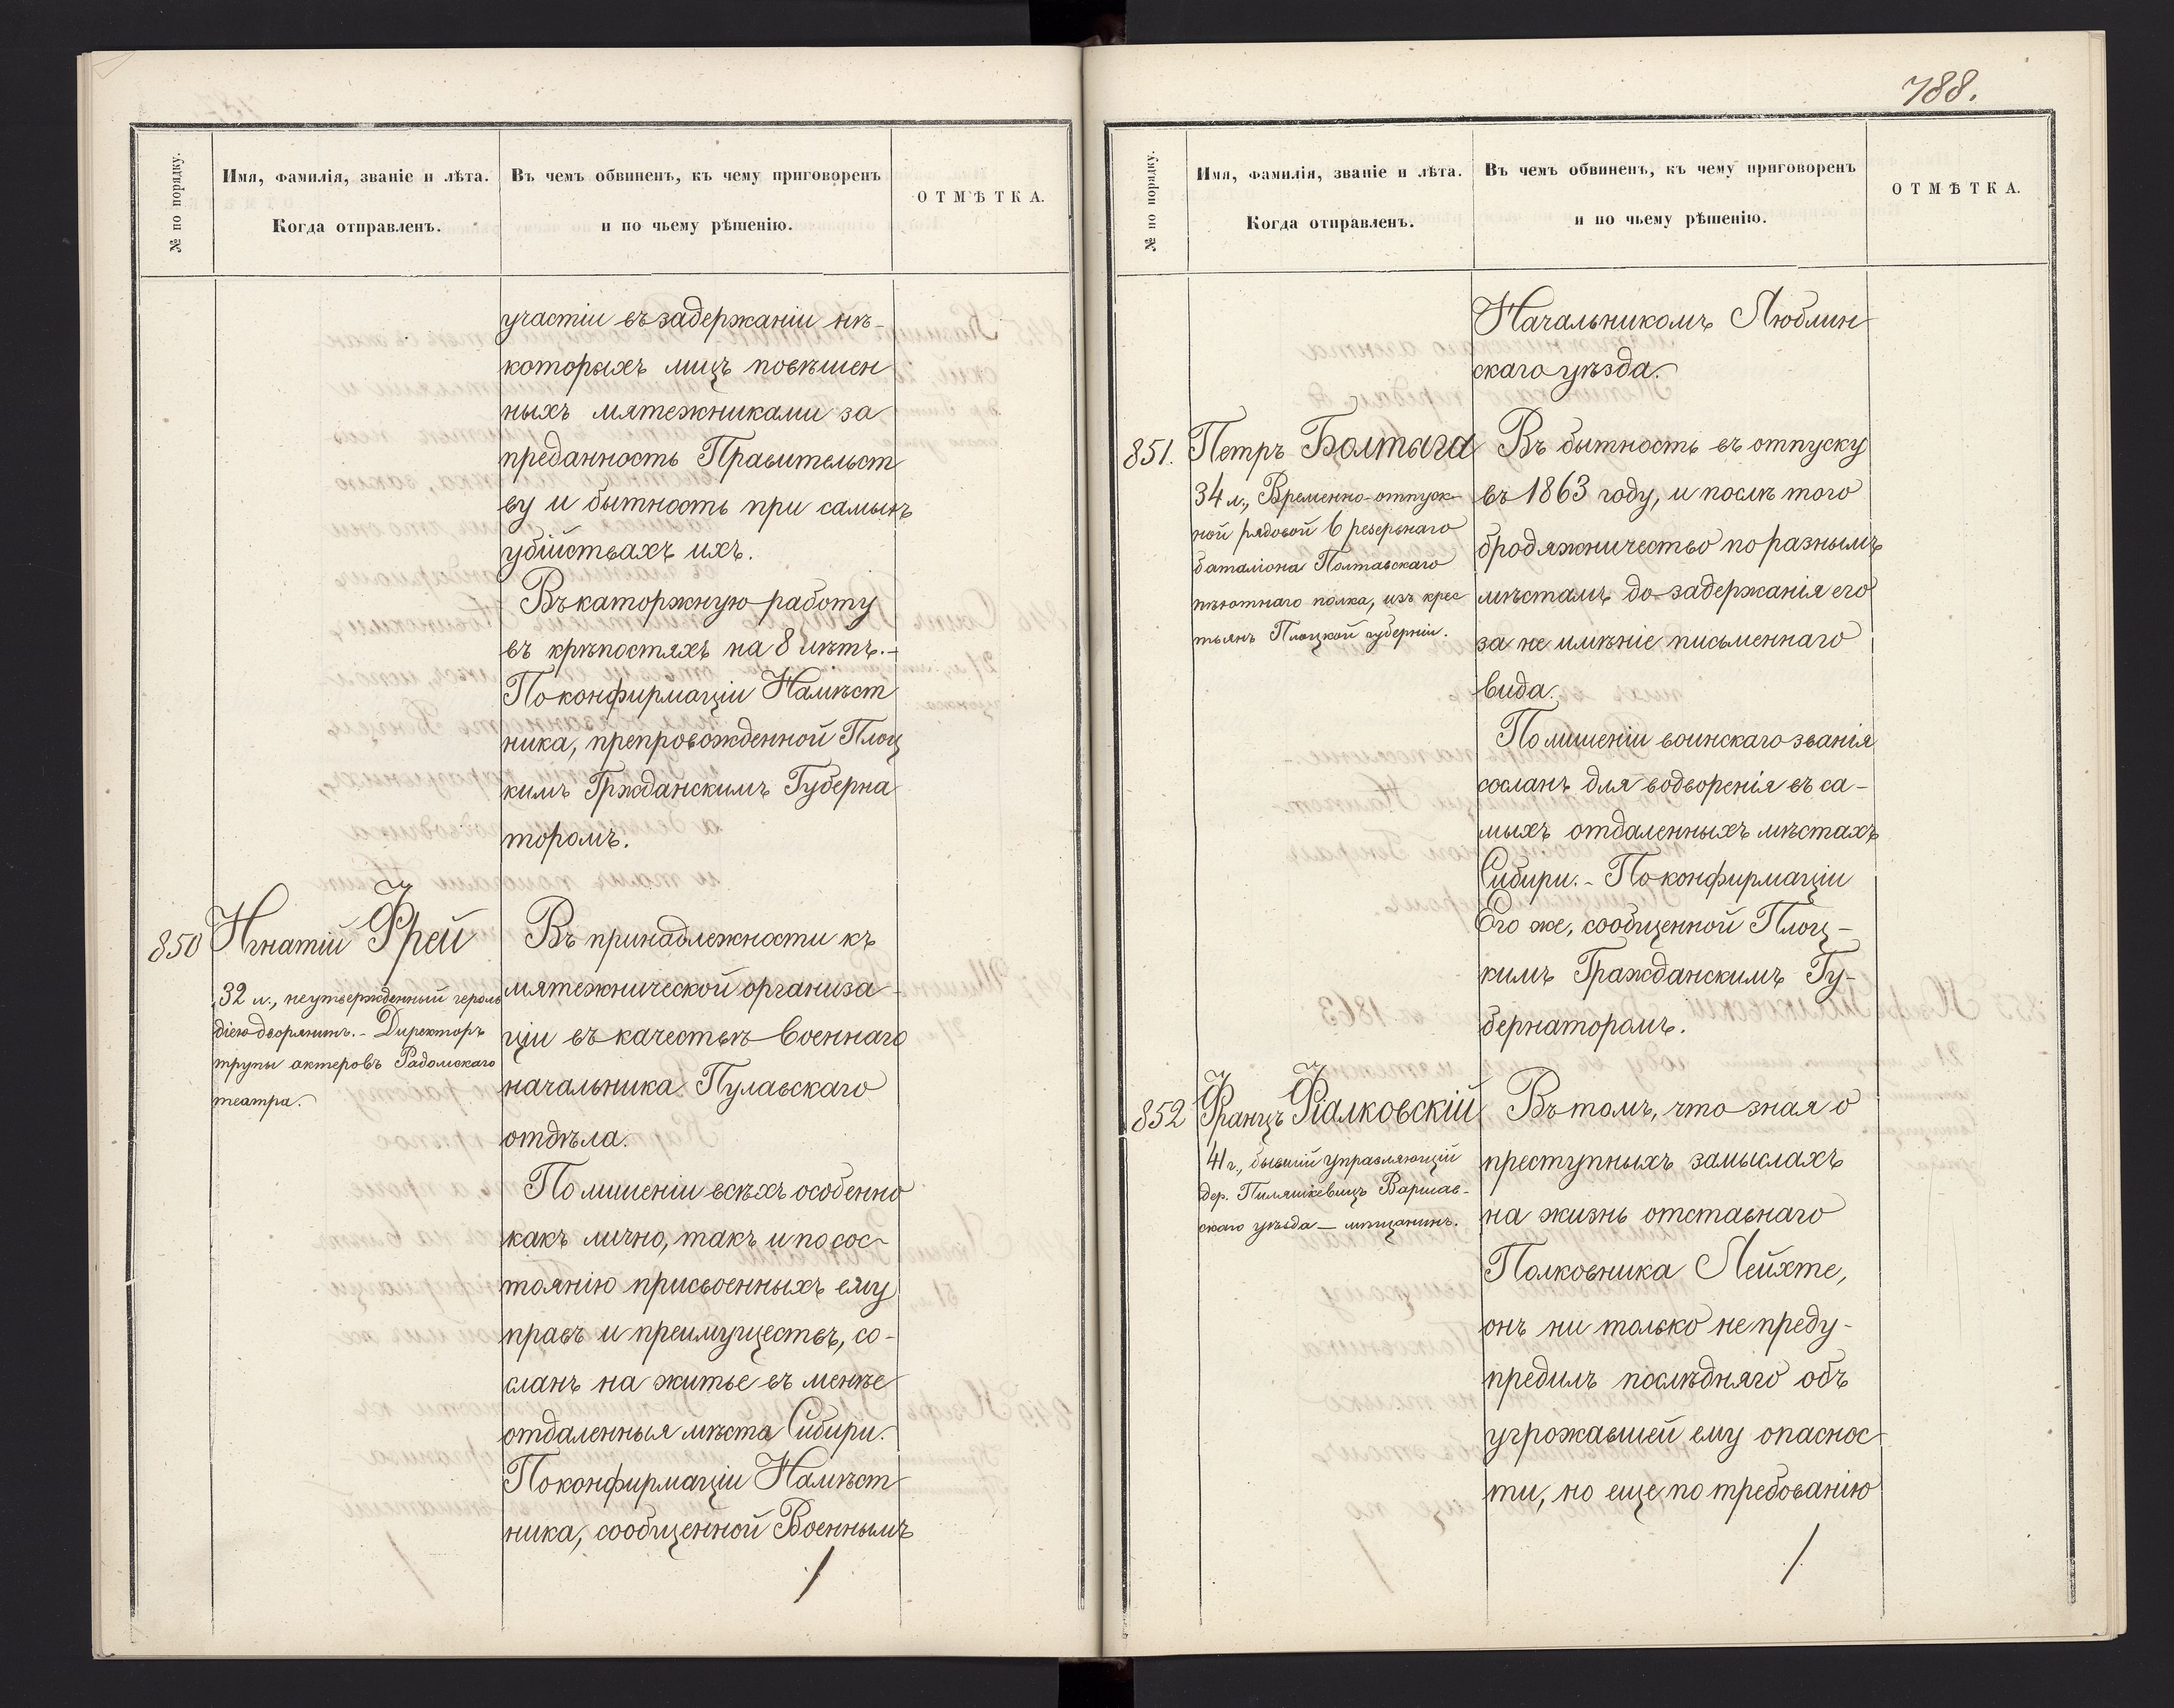 № по порядку.
Имя, фамилія, званіе и лѣта.
Когда отправленъ.
Въ чемъ обвиненъ, къ чему приговоренъ
и по чьему рѣшенію.
ОТМѢТКА.
участіи въ задержаніи нѣ-
которыхъ лицъ повѣшен
ныхъ мятежниками за
преданность Правительст
ву и бытность при самыхъ
убійствахъ ихъ.
Въ каторжную работу
въ крѣпостяхъ на 8 лѣтъ.-
По конфирмаціи Намѣст
ника, препровожденной Плоц
кимъ Гржданскимъ Губерна
торомъ.
850
Игнатій Фрей
32 л., неутвержденный героль
діею дворянинъ.- Директоръ
трупы актеровъ Радомскаго
театра.
Въ принадлежности къ
мятежнической организа-
ціи въ качествѣ военнаго
начальника Пулавскаго
отдѣла.
По лишеніи всѣхъ особенно
какъ лично, такъ и по сос-
тоянію присвоенныхъ ему
правъ и преимуществъ, со-
сланъ на житье въ менѣе
отдаленныя мѣста Сибири.
По конфирмаціи Намѣст
ника, сообщенной Военнымъ
788.
№ по порядку.
Имя, фамилія, званіе и лѣта.
Когда отправленъ.
Въ чемъ обвиненъ, къ чему приговоренъ
и по чьему рѣшенію.
ОТМѢТКА.
Начальникомъ Люблин
скаго уѣзда.
851.
Петръ Болтыга
34 л., Временно-отпуск-
ной рядовой 6 резервнаго
баталіона Полтавскаго
пѣхотнаго полка, изъ крес
тьянъ Плоцкой губерніи.
Въ бытность въ отпуску
въ 1863 году, и послѣ того
бродяжничество по разнымъ
мѣстамъ до задержанія его
за не имѣніе письменнаго
вида.
По лишеніи воинскаго званія
сосланъ для водворенія въ са-
мыхъ отдаленныхъ мѣстахъ
Сибири.- По конфирмаціи
Его же, сообщенной Плоц-
кимъ Гражданскимъ Гу-
бернаторомъ.
852
Францъ Фіалковскій
41 г., бывшій управляющій
дер. Пиляшкевицъ Варшав-
скаго уѣзда — мѣщанинъ.
Въ томъ, что зная о
преступныхъ замыслахъ
на жизнь отставнаго
Полковника Лейхте,
онъ ни только не преду-
предилъ послѣдняго объ
угрожавшей ему опаснос
ти, но еще по требованію